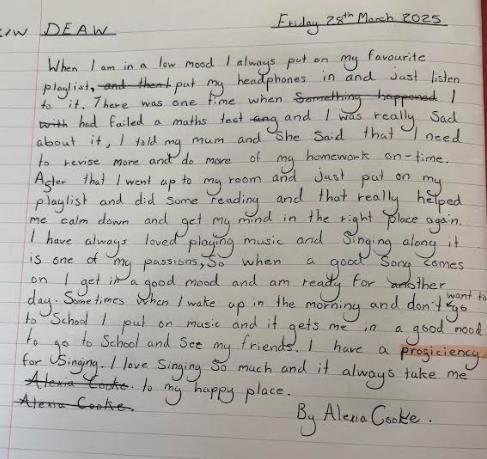 C/W DEAW Friday 28th March 2025
When I am in a low mood I always put on my favourite
playlist, and then I put my headphones in and Just listen
to it. There was one time when Something happened I
with had failed a maths test ang and I was really Sad
about it, I told my mum and She Said that I need
to revise more and do more of my homework on-time.
After that I went up to my room and just put on my
playlist and did Some reading and that really helped
me calm down and get my mind in the right place again.
I have always loved playing music and Singing along it
is one of my passions, So when a good Song comes
on I get in a good mood and am ready for another
day. Sometimes when I wake up in the morning and don't want to go
to School I put on music and it gets me in a good mood
to go to School and See my friends. I have a proficiency
for Singing. I love Singing So much and it always take me
Alexia Cooke. to my happy place.
Alexia Cooke. By Alexia Cooke.